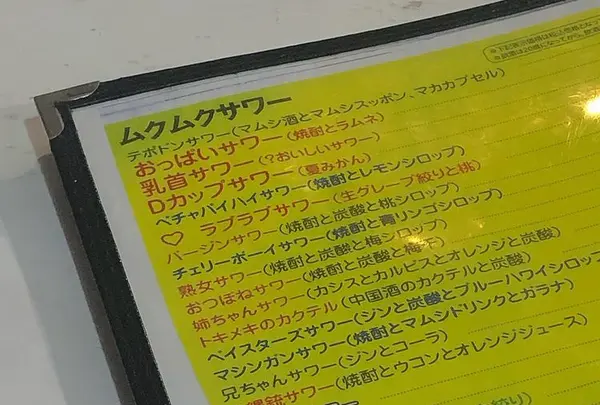 ムクムクサワー
テポドンサワー(マムシ酒とマムシスッポン、マカカプセル)
おっぱいサワー(焼酎とラムネ)
乳首サワー(?おいしいサワー)
Dカップサワー(夏みかん)
ペチャパイハイサワー(焼酎とレモンシロップ)
♡ ラブラブサワー(生グレープ絞りと桃)
バージンサワー(焼酎と炭酸と桃シロップ)
チェリーボーイサワー(焼酎と青リンゴシロップ)
熟女サワー(焼酎と炭酸と梅シロップ)
おつぼねサワー(焼酎と炭酸と梅干)
姉ちゃんサワー(カシスとカルピスとオレンジと炭酸)
トキメキのカクテル(中国酒のカクテルと炭酸)
ベイスターズサワー(ジンと炭酸とブルーハワイシロップ
マシンガンサワー(焼酎とマムシドリンクとガラナ)
兄ちゃんサワー(ジンとコーラ)
銃サワー(焼酎とウコンとオレンジジュース)